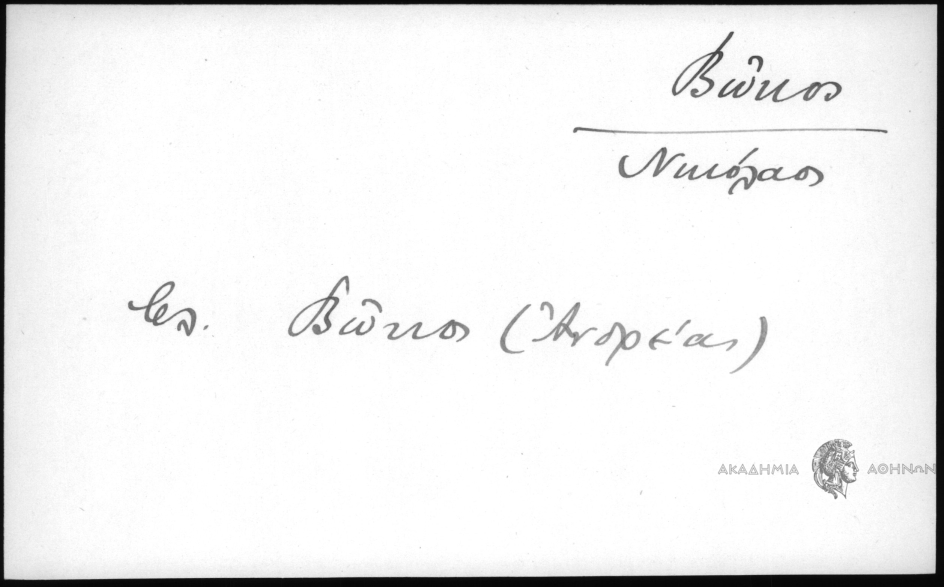 Βῶκος
Νικόλαος
βλ. Βῶκος (Ἀνδρέας)
ΑΚΑΔΗΜΙΑ ΑΘΗΝΩΝ